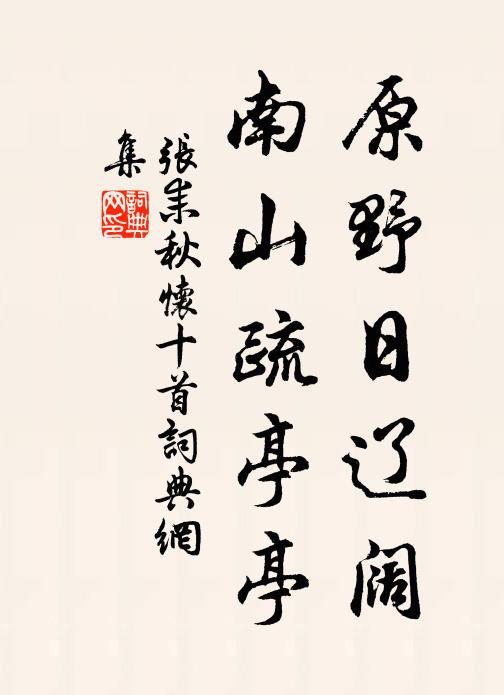 原野日辽阔
南山疏亭亭
張耒秋懷十首詞典網
集
詞典网印